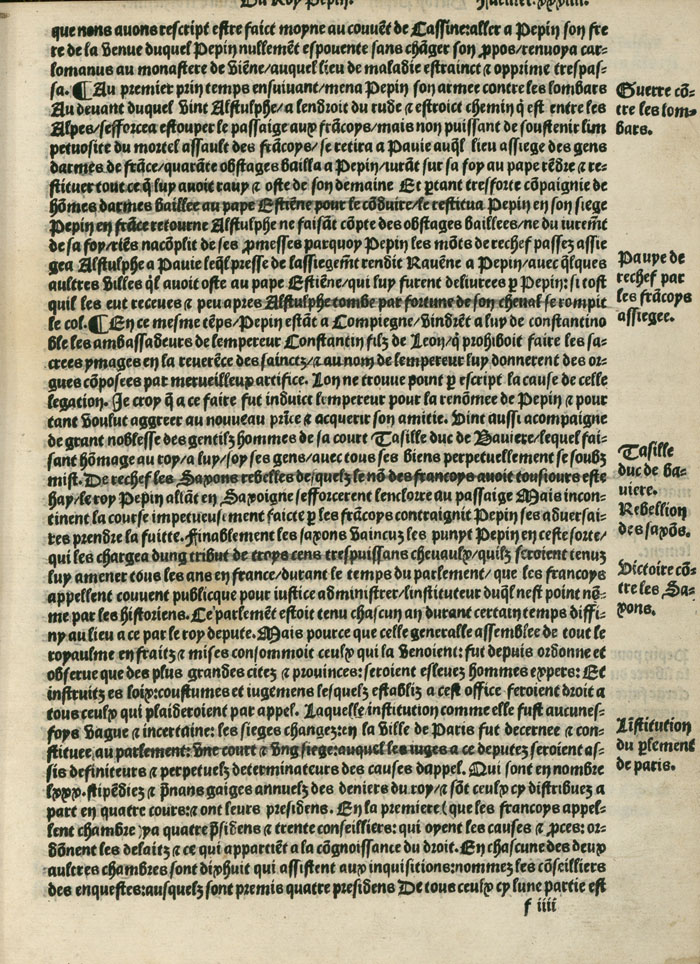 Du Roy Pepin.
Fueillet.xxxiiii.
que nous auons rescript estre faict moyne au couuẽt de Cassine:aller a Pepin son fre
re de la venue duquel Pepin nullemẽt espouente sans chãger son ꝓpos/renuoya car-
lomanus au monastere de Viẽne/auquel lieu de maladie estrainct ⁊ opprime trespas-
sa. ¶ Au premier prin temps ensuiuant/mena Pepin son armee contre les lombars
Au deuant duquel vint Alstulphe/a lendroit du rude ⁊ estroict chemin q̃ est entre les
Alpes/sefforcea estouper le passaige aux frãcoys/mais non puissant de soustenir lim
petuosite du mortel assault des frãcoys/ se retira a Pauie auq̃l lieu assiege des gens
darmes de frãce/quarãte obstages bailla a Pepin/iurãt sur sa foy au pape rẽdre ⁊ re-
stituer tout ce q̃ luy auoit rauy ⁊ oste de son demaine Et ꝑtant tresforte cõpaignie de
hõmes darmes baillee au pape Estiẽne pour le cõduire/le restitua Pepin en son siege
Pepin en frãce retourne Alstulphe ne faisãt cõpte des obstages baillees/ne du iuremẽt
de sa foy/riẽs nacõplit de ses ꝓmesses parquoy Pepin les mõts de rechef passez assie
gea Alstulphe a Pauie leq̃l presse de lassiegemẽt rendit Rauẽne a Pepin/auec q̃lques
aultres villes q̃l auoit oste au pape Estiẽne/qui luy furent deliurees ꝑ Pepin: si tost
quil les eut receues ⁊ peu apres Alstulphe tombe par fortune de son cheual se rompit
le col. ¶ En ce mesme tẽps/Pepin estãt a Compiegne/vindrẽt a luy de constantino
ble les ambassadeurs de lempereur Constantin filz de Leon/q̃ prohiboit faire les sa-
crees ymages en la reuerẽce des sainctz/⁊ au nom de lempereur luy donnerent des or-
gues cõposees par merueilleux artifice. Lon ne trouue point ꝑ escript la cause de celle
legation. Je croy q̃ a ce faire fut induict lempereur pour la renõmee de Pepin ⁊ pour
tant voulut aggreer au nouueau prĩce ⁊ acquerir son amitie. Vint aussi acompaigne
de grant noblesse des gentilz hommes de sa court Tasille duc de Bauiere/lequel fai-
sant hõmage au roy/a luy/soy ses gens/auec tous ses biens perpetuellement se soubz
mist. De rechef les Saxons rebelles desquelz le nõ des francoys auoit tousiours este
hay/le roy Pepin aliãt en Saxoigne sefforcerent lenclorre au passaige Mais incon-
tinent la course impetueusement faicte ꝑ les frãcoys contraignit Pepin ses aduersai-
res prendre la fuitte. Finablement les saxons vaincuz les punyt Pepin en ceste sorte/
qui les chargea dung tribut de troys cens trespuissans cheuaulx/quilz seroient tenuz
luy amener tous les ans en france/durant le temps du parlement/ que les francoys
appellent conuent publicque pour iustice administrer/linstituteur duq̃l nest point nõ-
me par les historiens. Ce parlemẽt estoit tenu chascun an durant certain temps diffi-
ny au lieu a ce par le roy depute. Mais pource que celle generalle assemblee de tout le
royaulme en fraitz ⁊ mises consommoit ceulx qui la venoient: fut depuis ordonne et
obserue que des plus grandes citez ⁊ prouinces: seroient esleuez hommes expers: Et
instruitz es loix:coustumes et iugemens lesquelz establiz a cest office feroient droit a
tous ceulx qui plaideroient par appel. Laquelle institution comme elle fust aucunes-
foys vague ⁊ incertaine: les sieges changez:en la ville de Paris fut decernee ⁊ con-
stituee au parlement: vne court ⁊ vng siege:auquel les iuges a ce deputez seroient as-
sis definiteurs ⁊ perpetuelz determinateurs des causes dappel. Qui sont en nombre
lxxx. stipẽdiez ⁊ p̃nans gaiges annuelz des deniers du roy/⁊ sõt ceulx cy distribuez a
part en quatre cours:⁊ ont leurs presidens. En la premiere (que les francoys appel-
lent chambre )ya quatre p̃sidens ⁊ trente conseilliers: qui oyent les causes ⁊ ꝓces: or-
dõnent les delaitz ⁊ ce qui appartiẽt a la cõgnoissance du droit. En chascune des deux
aultres chambres sont dixhuit qui assistent aux inquisitions:nommez les cõseilliers
des enquestes:ausquelz sont premis quatre presidens De tous ceulx cy lune partie est
f iiii
Guerre cõ-
tre les lom-
bars.
Pauye de
rechef par
les frãcoys
assiegee.
Tasille
duc de ba-
uiere.
Rebellion
des saxõs.
Victoire cõ-
tre les Sa-
xons.
Lĩstitution
du ꝑlement
de paris.